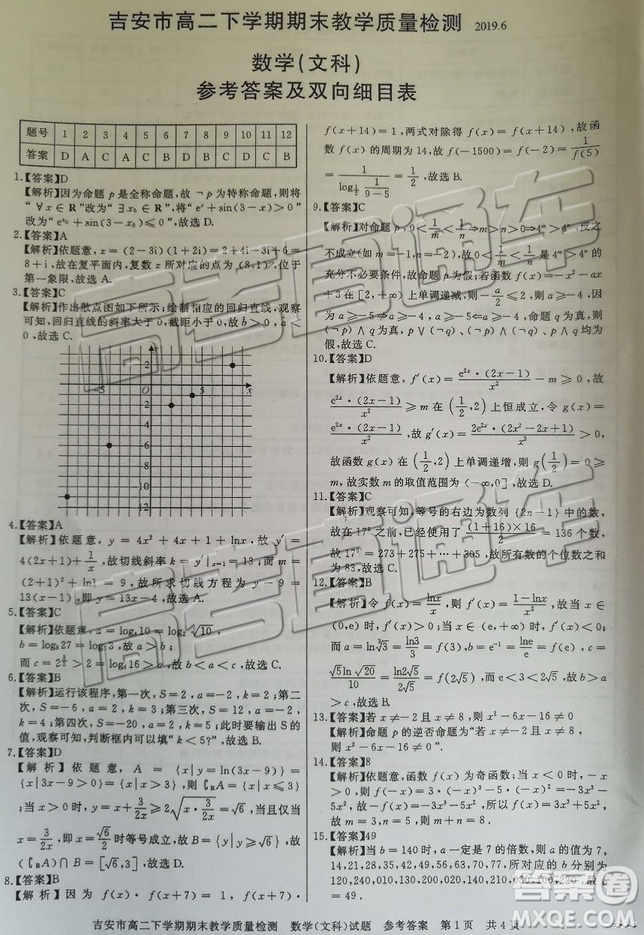 吉安市高二下学期期末教学质量检测 2019.6
数学(文科)
参考答案及双向细目表
题号 1 2 3 4 5 6 7 8 9 10 11 12
答案 D A C A C B D B C D C B
1.【答案】D
【解析】因为命题 p 是全称命题，故 ¬p 为特称命题，则将
“∀x∈R”改为“∃x₀∈R”，将“eˣ+sin(3-x)>0”
改为“eˣ⁰+sin(3-x₀)≤0”，故选 D.
2.【答案】A
【解析】依题意，z=(2-3i)(1+2i)=2+4i-3i+6=
8+i，故在复平面内，复数 z 所对应的点为(8,1)，位于
第一象限，故选 A.
3.【答案】C
【解析】作出散点图如下所示；绘制相应的回归直线，观察
可知，回归直线的斜率大于 0，截距小于 0，故 b>0，a<
0，故选 C.
4.【答案】A
【解析】依题意，y=4x²+4x+1+lnx，故 y′=
4(2x+1)+1/x，故切线斜率 k=y′|ₓ₌₁=13；而 m=
(2+1)²+ln1=9，故所求切线方程为 y-9=
13(x-1)，即 y=13x-4，故选 A.
5.【答案】C
【解析】依题意，
b=log₈27=log₂3，故 a>b；
故选 C.
6.【答案】B
【解析】运行该程序，第一次，S=2，a=-2，k=2；第二
次，S=-2，a=2，k=3；第三次，S=12，a=-2，
k=4；第四次，S=-20，a=2，k=5；此时要输出 S 的
值，观察可知，判断框内可以填“k<5?”，故选 B.
7.【答案】D
【解析】依题意，A={x|y=ln(3x-9)}=
{x|3x-9>0}={x|x>3}，则∁ᴿA={x|x≤3}
；当 x>0 时，y=x+3/2x≥2√(x·3/2x)=√6，当且仅当
x=3/2x，即 x=√6/2 时等号成立，故 B={y|y≥√6}，故
(∁ᴿA)∩B=[√6,3]，故选 D.
8.【答案】B
【解析】因为 f(x)·f(x+7)=1，f(x+7)·
f(x+14)=1，两式对除得 f(x)=f(x+14)，故函
数 f(x)的周期为 14，故 f(-1500)=f(-2)=1/f(5)
=1/2，故选 B.
9.【答案】C
【解析】对命题 p，0<1/m<1/n⇒m>n>0⇒4ᵐ>4ⁿ，反之
不成立(如 m=-1,n=-2)，
充分不必要条件，故命题 p 为假；若函数 f(x)=-x²-ax
+3 在[2,+∞)上单调递减，则-a/2≤2，则 a≥-4，
因为 a≥-5⇏a≥-4，a≥-5⇐a≥-4，命题 q 为真，则
(¬p)∧q 为真，p∨(¬q)、(¬p)∧(¬q)、p∧q 为假，故选 C.
10.【答案】D
【解析】依题意，f′(x)=e²ˣ·(2x-1)/x²-m≥0，故
e²ˣ·(2x-1)/x²≥m 在(1/2,2)上恒成立，令 g(x)=
e²ˣ·(2x-1)/x²，故 g′(x)=2e²ˣ·(2x²-2x+1)/x³>0，
故函数 g(x)在(1/2,2)上单调递增，则 m≤g(1/2)=0，
故实数 m 的取值范围为(-∞,0]，故选 D.
11.【答案】C
【解析】观察可知，等号的右边为数列{2n-1}中的
数，故在 17³之前，已经使用了(1+16)×16/2=136 个数，
故 17³=273+275+…+305，故所有数的个位数之和
为 83，故选 C.
12.【答案】B
【解析】令 f(x)=lnx/x，则 f′(x)=(1-lnx)/x²，故当 x∈
(0,e)时，f′(x)>0；当 x∈(e,+∞)时，f′(x)<0，
而 a=ln∛3=ln3/3=f(3)，b=e⁻¹=lne/e=f(e)，c=
√5ln√20/10=ln2√5/2√5=f(2√5)，而 e<3<2√5，故 b>
a>c，故选 B.
13.【答案】若 x≠-2 且 x≠8，则 x²-6x-16≠0
【解析】命题 p 的逆否命题为“若 x≠-2 且 x≠8，则 x²
-6x-16≠0”.
14.【答案】8
【解析】依题意，函数 f(x)为奇函数；当 x<0 时，-x
>0，则 f(-x)=-f(x)=3(-x)³-5(-x)²=-3x³-
5x²，故 f(x)=3x³+5x²，故当 x<0 时，f(x)=3x³+5x²，
故 a+b=8.
15.【答案】49
【解析】当 b=140 时，a 一定是 7 的倍数，则当 a=7,
14,21,28,35,42,49,56,63,70,77，对应的 b 分别为
120,240,010,130,250,020,140,260,030,160,220，故 a
=49.
吉安市高二下学期期末教学质量检测 数学(文科)试题 参考答案 第 1 页 共 4 页
高考直通车
答案圈
MXQE.COM